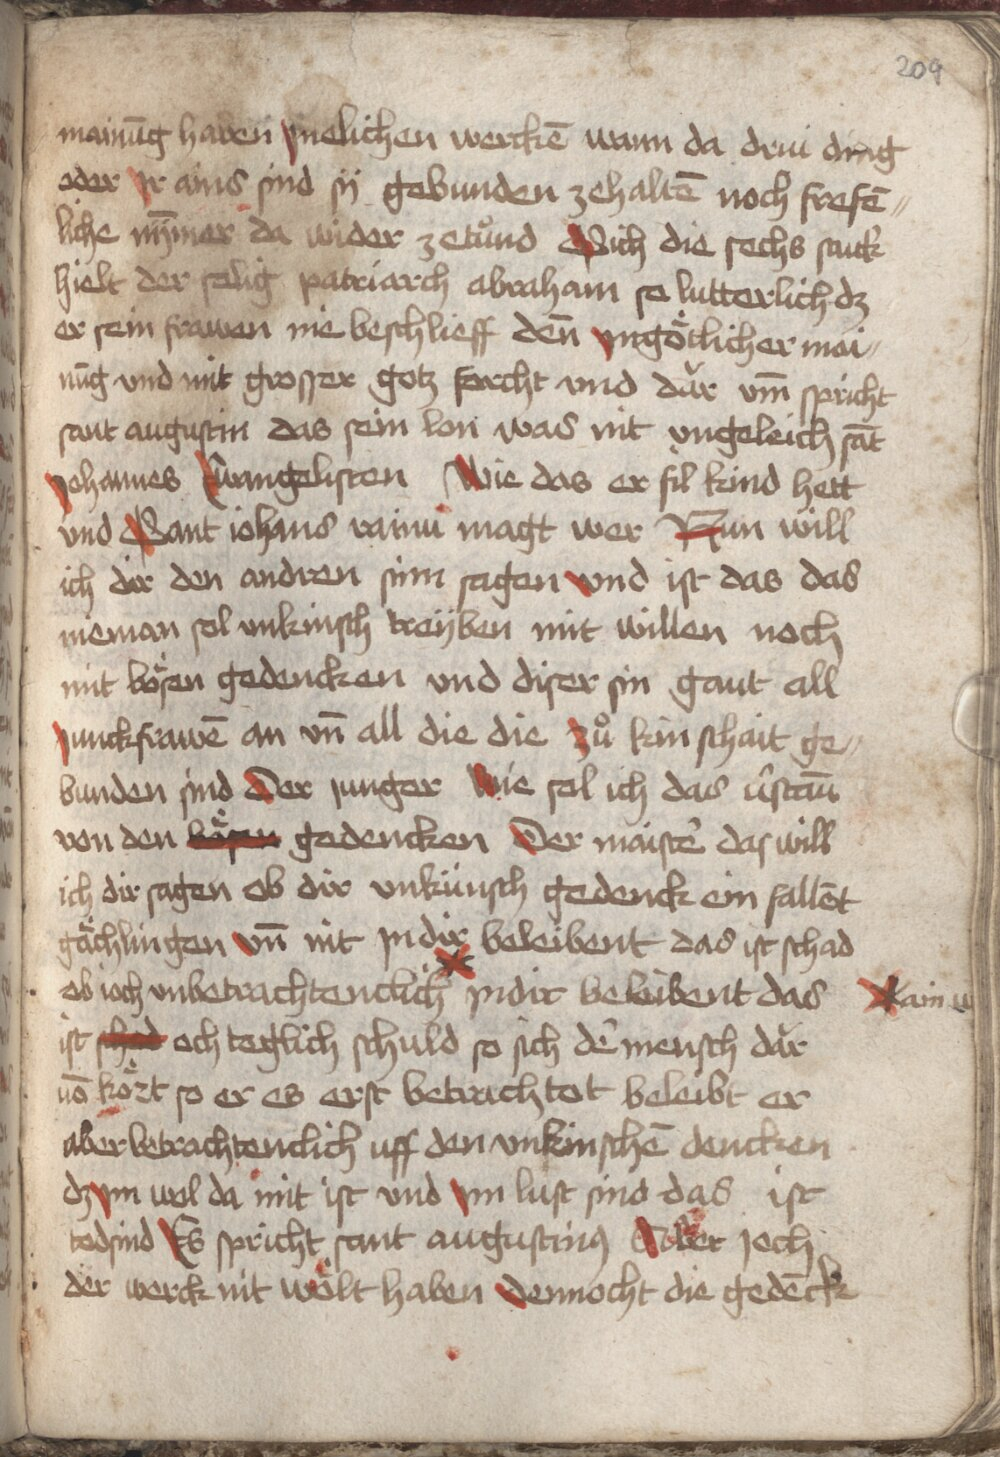 209
mainūg haben jnelichen werckē wann da drui ding
oder jr ains sind sÿ gebunden zehaltē noch frefē〃
liche nȳmer da wider zetůnd Sich die sechs stuck
hielt der selig patriarch abraham so lutterlich dz
er sein frawen nie beschlieff den̄ jngötlicher mai〃
nūg vnd mit grosser gotz forcht vnd dăr vm̄ spricht
sant augustin das sein lon was nit vngeleich sāt
johannes Ewangelisten Wie das er fil kind hett
vnd Sant iohans rainu magt wer Nun will
ich dir den andren sinn sagen vnd ist das das
nieman sol vnkinsch treÿben mit willen noch
mit bösen gedencken vnd diser sin gaut all
junckfrawē an vn̄ all die die zů kinschait ge〃
bunden sind Der junger Wie sol ich das v̂staū
von den bösen gedencken Der maiste᷑ das will
ich dir sagen ob dir vnkünsch gedenck ein fallēt
gächlingen vn̄ nit jndir beleibent das ist schad
ob ioch vnbetrachtenclich jndir beleibent das ain
ist schad och teglich schuld so sich de᷑ mensch dăr
vō kört so er es erst betrachtot beleibt er
aber betrachtenclich uff den vnkinschē dencken
dz jm wol da mit ist vnd jm lust sind das ist
todsind Es spricht sant augustinꝰ Aber joch
der werck nit wölt haben dennocht die gedēck